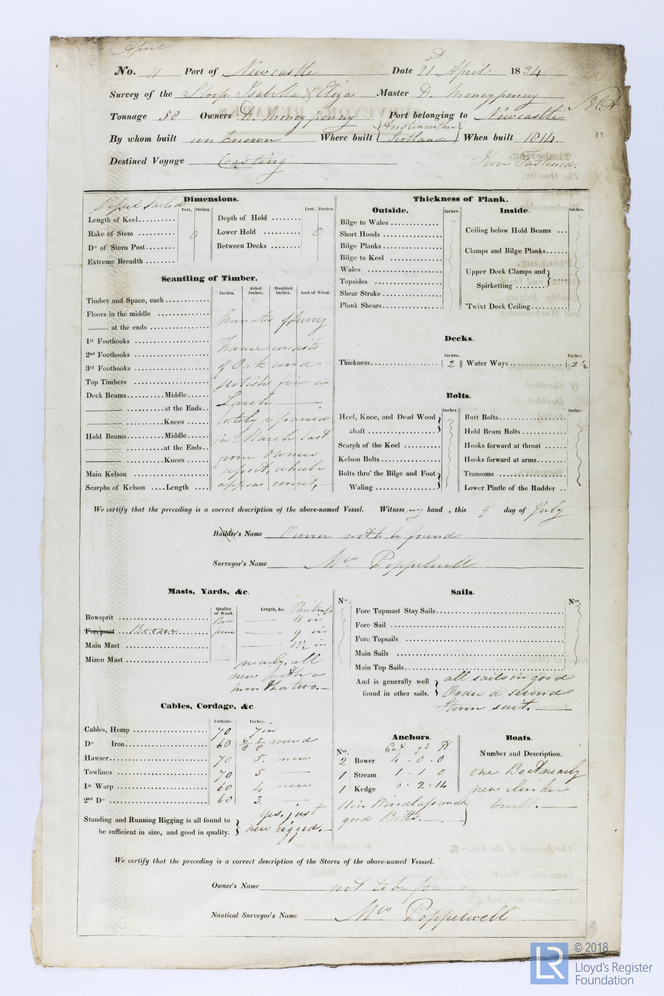 April
No. 11 Port of Newcastle Date 21 April 1834
Survey of the Sloop Isabella & Eliza Master D. Moneypenny
Tonnage 58 Owners D. Moneypenny Port belonging to Newcastle
By whom built unknown Where built Scotland When built 1814
Destined Voyage Coasting
Dimensions.
Feet. Inches. Feet. Inches.
Length of Keel
Rake of Stem
Do of Stern Post
Extreme Breadth
Depth of Hold
Lower Hold
Between Decks
Scantling of Timber.
Inches. Sided Inches. Moulded Inches. Sort of Wood.
Timber and Space, each
Floors in the middle
—— at the ends
1st Foothooks
2nd Foothooks
3rd Foothooks
Top Timbers
Deck Beams Middle
at the Ends
Knees
Hold Beams Middle
at the Ends
Knees
Main Kelson
Scarphs of Kelson Length
Frame consists
of Oak and
Larch
lately repaired
in March last
from Owners
report, which
appears correct,
Thickness of Plank.
Outside. Inches.
Bilge to Wales
Short Hoods
Bilge Planks
Bilge to Keel
Wales
Topsides
Shear Strake
Plank Shears
Inside. Inches.
Ceiling below Hold Beams
Clamps and Bilge Planks
Upper Deck Clamps and
Spirketting
'Twixt Deck Ceiling
Decks.
Inches. Inches.
Thickness 2 Water Ways 2½
Bolts.
Inches. Inches.
Heel, Knee, and Dead Wood
abaft
Scarph of the Keel
Kelson Bolts
Bolts thro' the Bilge and Foot
Waling
Butt Bolts
Hold Beam Bolts
Hooks forward at throat
Hooks forward at arms
Transoms
Lower Pintle of the Rudder
We certify that the preceding is a correct description of the above-named Vessel. Witness my hand, this 9 day of July
Builder's Name Owner not to be found
Surveyor's Name Wm Poppelwell
Masts, Yards, &c.
Quality of Wood. Length, &c.
Bowsprit 11 in
Foremast Boom 9 in
Main Mast 13½ in
Mizen Mast
nearly all
Sails.
No. No.
Fore Topmast Stay Sails
Fore Sail
Fore Topsails
Main Sails
Main Top Sails
And is generally well
found in other sails.
all sails in good
Order a second
storm suit.
Cables, Cordage, &c.
Fathoms. Inches.
Cables, Hemp 70 7 in
Do Iron 60 round
Hawser 70 5 new
Towlines 70 5
1st Warp 60 4 new
2nd Do 60 3
Standing and Running Rigging is all found to
be sufficient in size, and good in quality.
yes, just
new rigged.
Anchors.
Nos. Cwt qr lb
2 Bower 4 . 0 . 0
1 Stream 1 . 1 . 0
1 Kedge 0 . 2 . 14
good Bitts.
Boats.
Number and Description.
one Boat nearly
new clinker
built.
We certify that the preceding is a correct description of the Stores of the above-named Vesssel.
Owner's Name not to be found
Nautical Surveyor's Name Wm Poppelwell
LR
© 2018
Lloyd's Register
Foundation